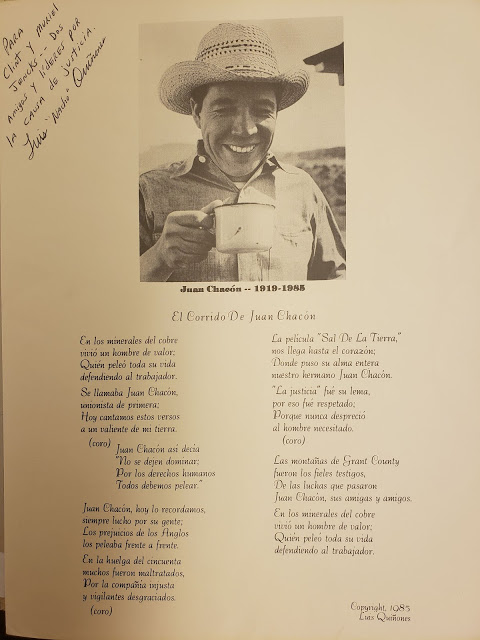 PARA
Clint Y MURIEL
JENCKS -- DOS
Amigos y líderes por
la causa de justicia.
Luis "Nacho" Quiñones
Juan Chacón -- 1919-1985
El Corrido De Juan Chacón
En los minerales del cobre
vivió un hombre de valor;
Quién peleó toda su vida
defendiendo al trabajador.
Se llamaba Juan Chacón,
unionista de primera;
Hoy cantamos estos versos
a un valiente de mi tierra.
(coro)
Juan Chacón así decía
"No se dejen dominar;
Por los derechos humanos
Todos debemos pelear."
Juan Chacón, hoy lo recordamos,
siempre lucho por su gente;
Los prejuicios de los Anglos
los peleaba frente a frente.
En la huelga del cincuenta
muchos fueron maltratados,
Por la compañía injusta
y vigilantes desgraciados.
(coro)
La película "Sal De La Tierra,"
nos llega hasta el corazón;
Donde puso su alma entera
nuestro hermano Juan Chacón.
"La justicia" fué su lema,
por eso fué respetado;
Porque nunca despreció
al hombre necesitado.
(coro)
Las montañas de Grant County
fueron los fieles testigos,
De las luchas que pasaron
Juan Chacón, sus amigas y amigos.
En los minerales del cobre
vivió un hombre de valor;
Quién peleó toda su vida
defendiendo al trabajador.
Copyright, 1985
Luis Quiñones